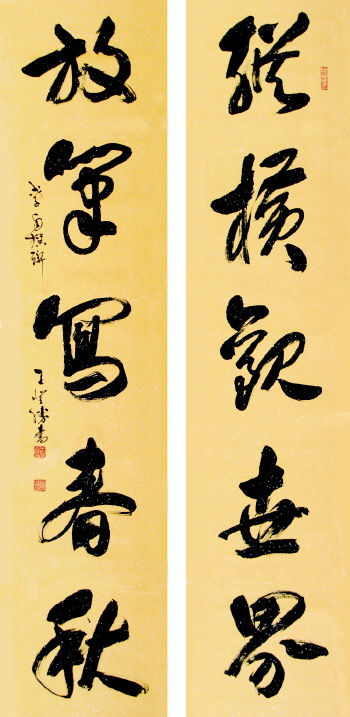 縱橫觀世界
放筆寫春秋